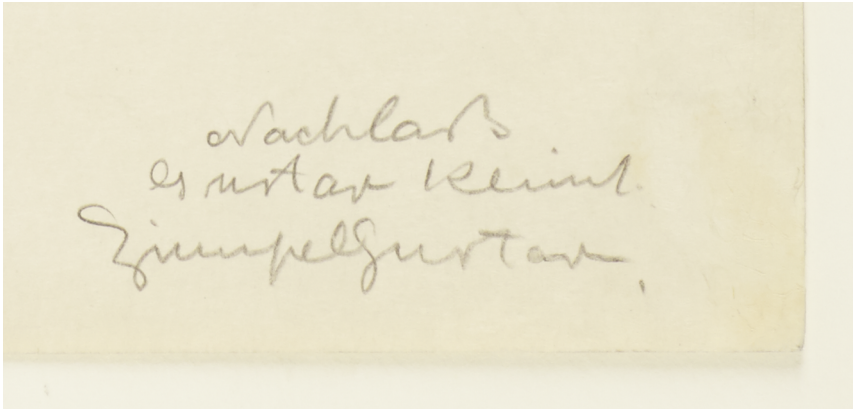 Nachlaß
Gustav Klimt
Zimpel Gustav,